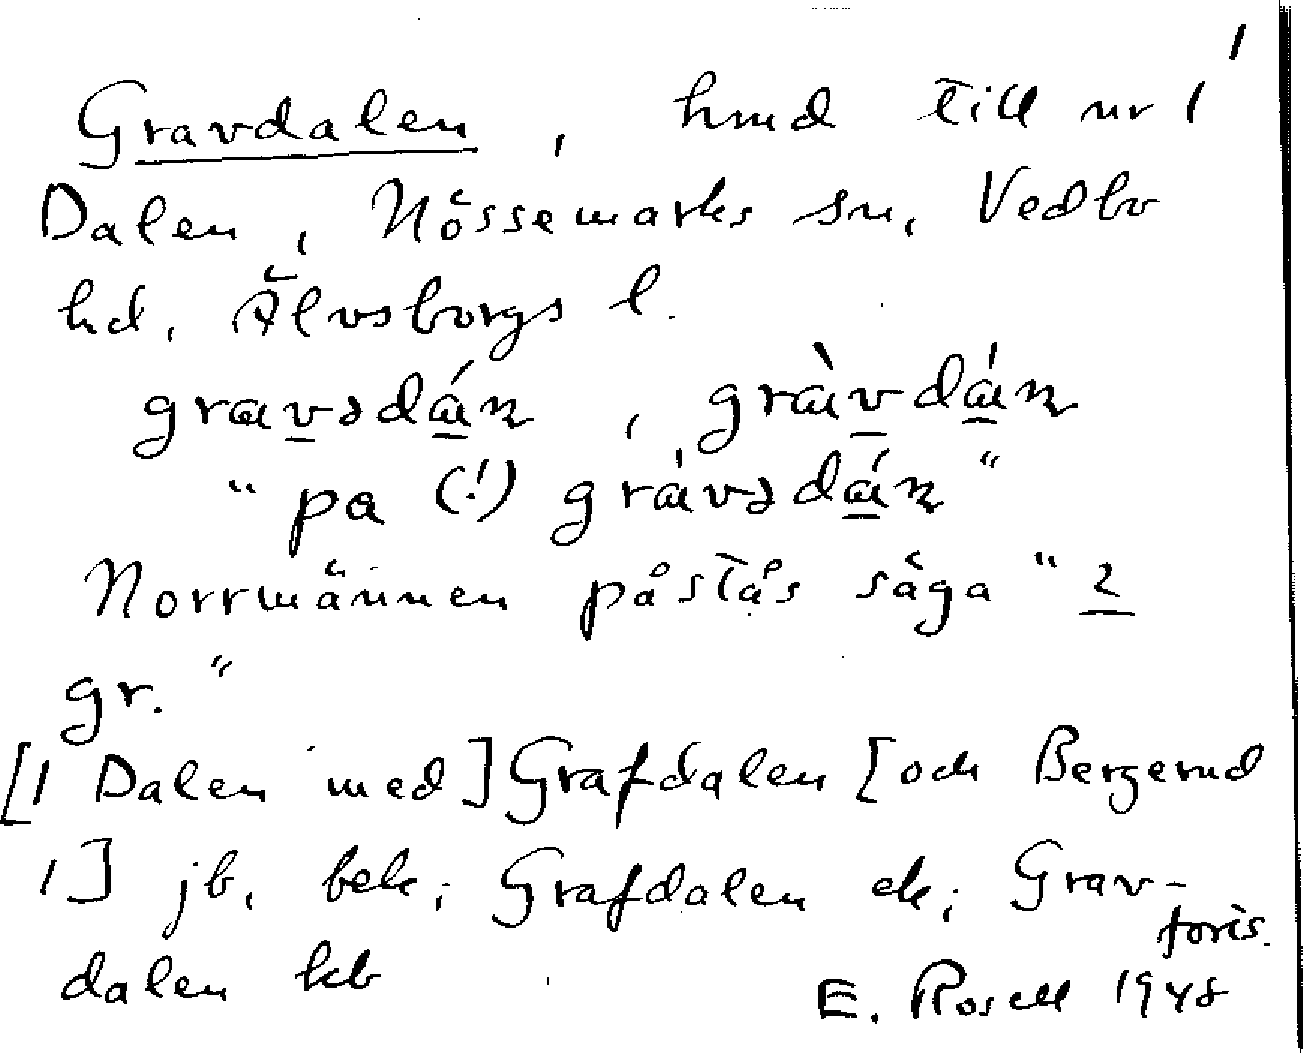 1
Gravdalen, hmd till nr 1
Dalen, Nössemarks sn, Vedbo
hd, Älvsborgs l.
gravsdán, gràvdán
"pa (!) grávsdán"
Norrmännen påstås säga "2
gr."
[1 Dalen med] Grafdalen [och Bergerud
1] jb, bek; Grafdalen ek; Grav-
dalen kb
foris.
E. Rosell 1948